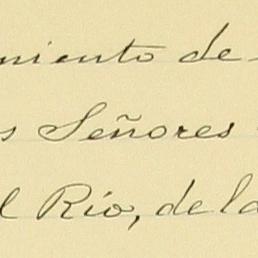 miento de
s Señores
l Río, de la